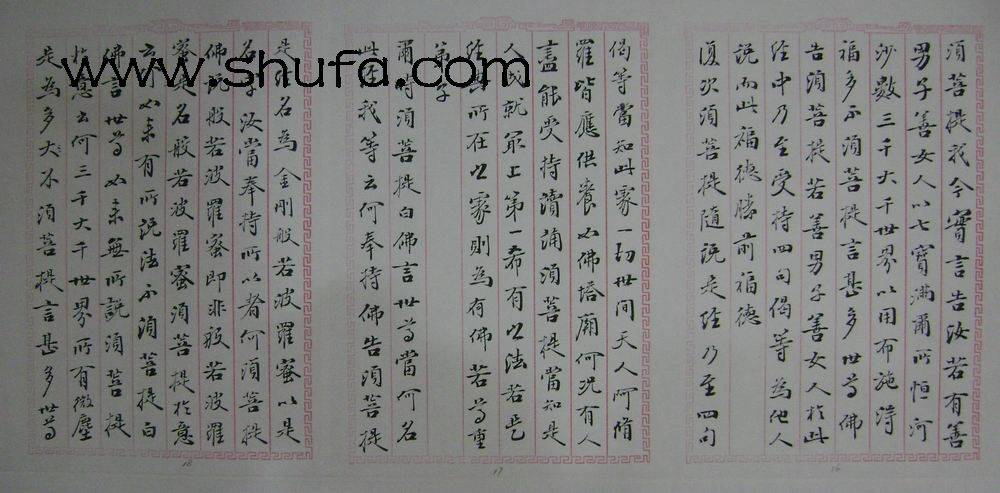 須菩提我今實言告汝若有善
男子善女人以七寶滿爾所恒河
沙數三千大千世界以用布施得
福多不須菩提言甚多世尊佛
告須菩提若善男子善女人於此
經中乃至受持四句偈等為他人
說而此福德勝前福德
復次須菩提隨說是經乃至四句
16
偈等當知此處一切世間天人阿脩
羅皆應供養如佛塔廟何況有人
盡能受持讀誦須菩提當知是
人成就最上第一希有之法若是
經典所在之處則為有佛若尊重
弟子
爾時須菩提白佛言世尊當何名
此經我等云何奉持佛告須菩提
17
是經名為金剛般若波羅蜜以是
名字汝當奉持所以者何須菩提
佛說般若波羅蜜即非般若波羅
蜜是名般若波羅蜜須菩提於意
云何如來有所說法不須菩提白
佛言世尊如來無所說須菩提
於意云何三千大千世界所有微塵
是為多大不須菩提言甚多世尊
18
www.shufa.com